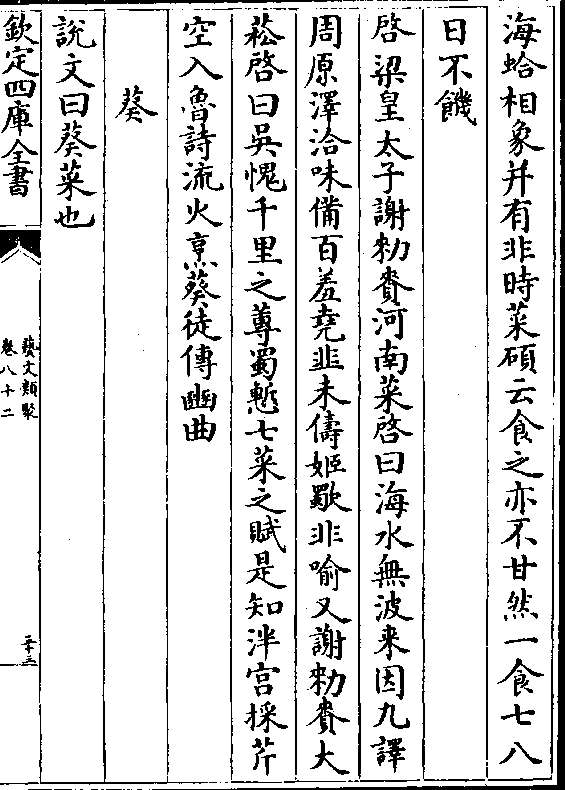 海蛤相象并有非時菜碩云食之亦不甘然一食七八
日不饑
啓梁皇太子謝勑賚河南菜啓曰海水無波来因九譯
周原澤洽味備百羞堯韭未儔姬歜非喻又謝勑賚大
菘啓曰吳愧千里之蓴蜀慙七菜之賦是知泮宫採芹
空入魯詩流火烹葵徒傳豳曲
葵
說文曰葵菜也
欽定四庫全書
藝文類聚
卷八十二
二十三